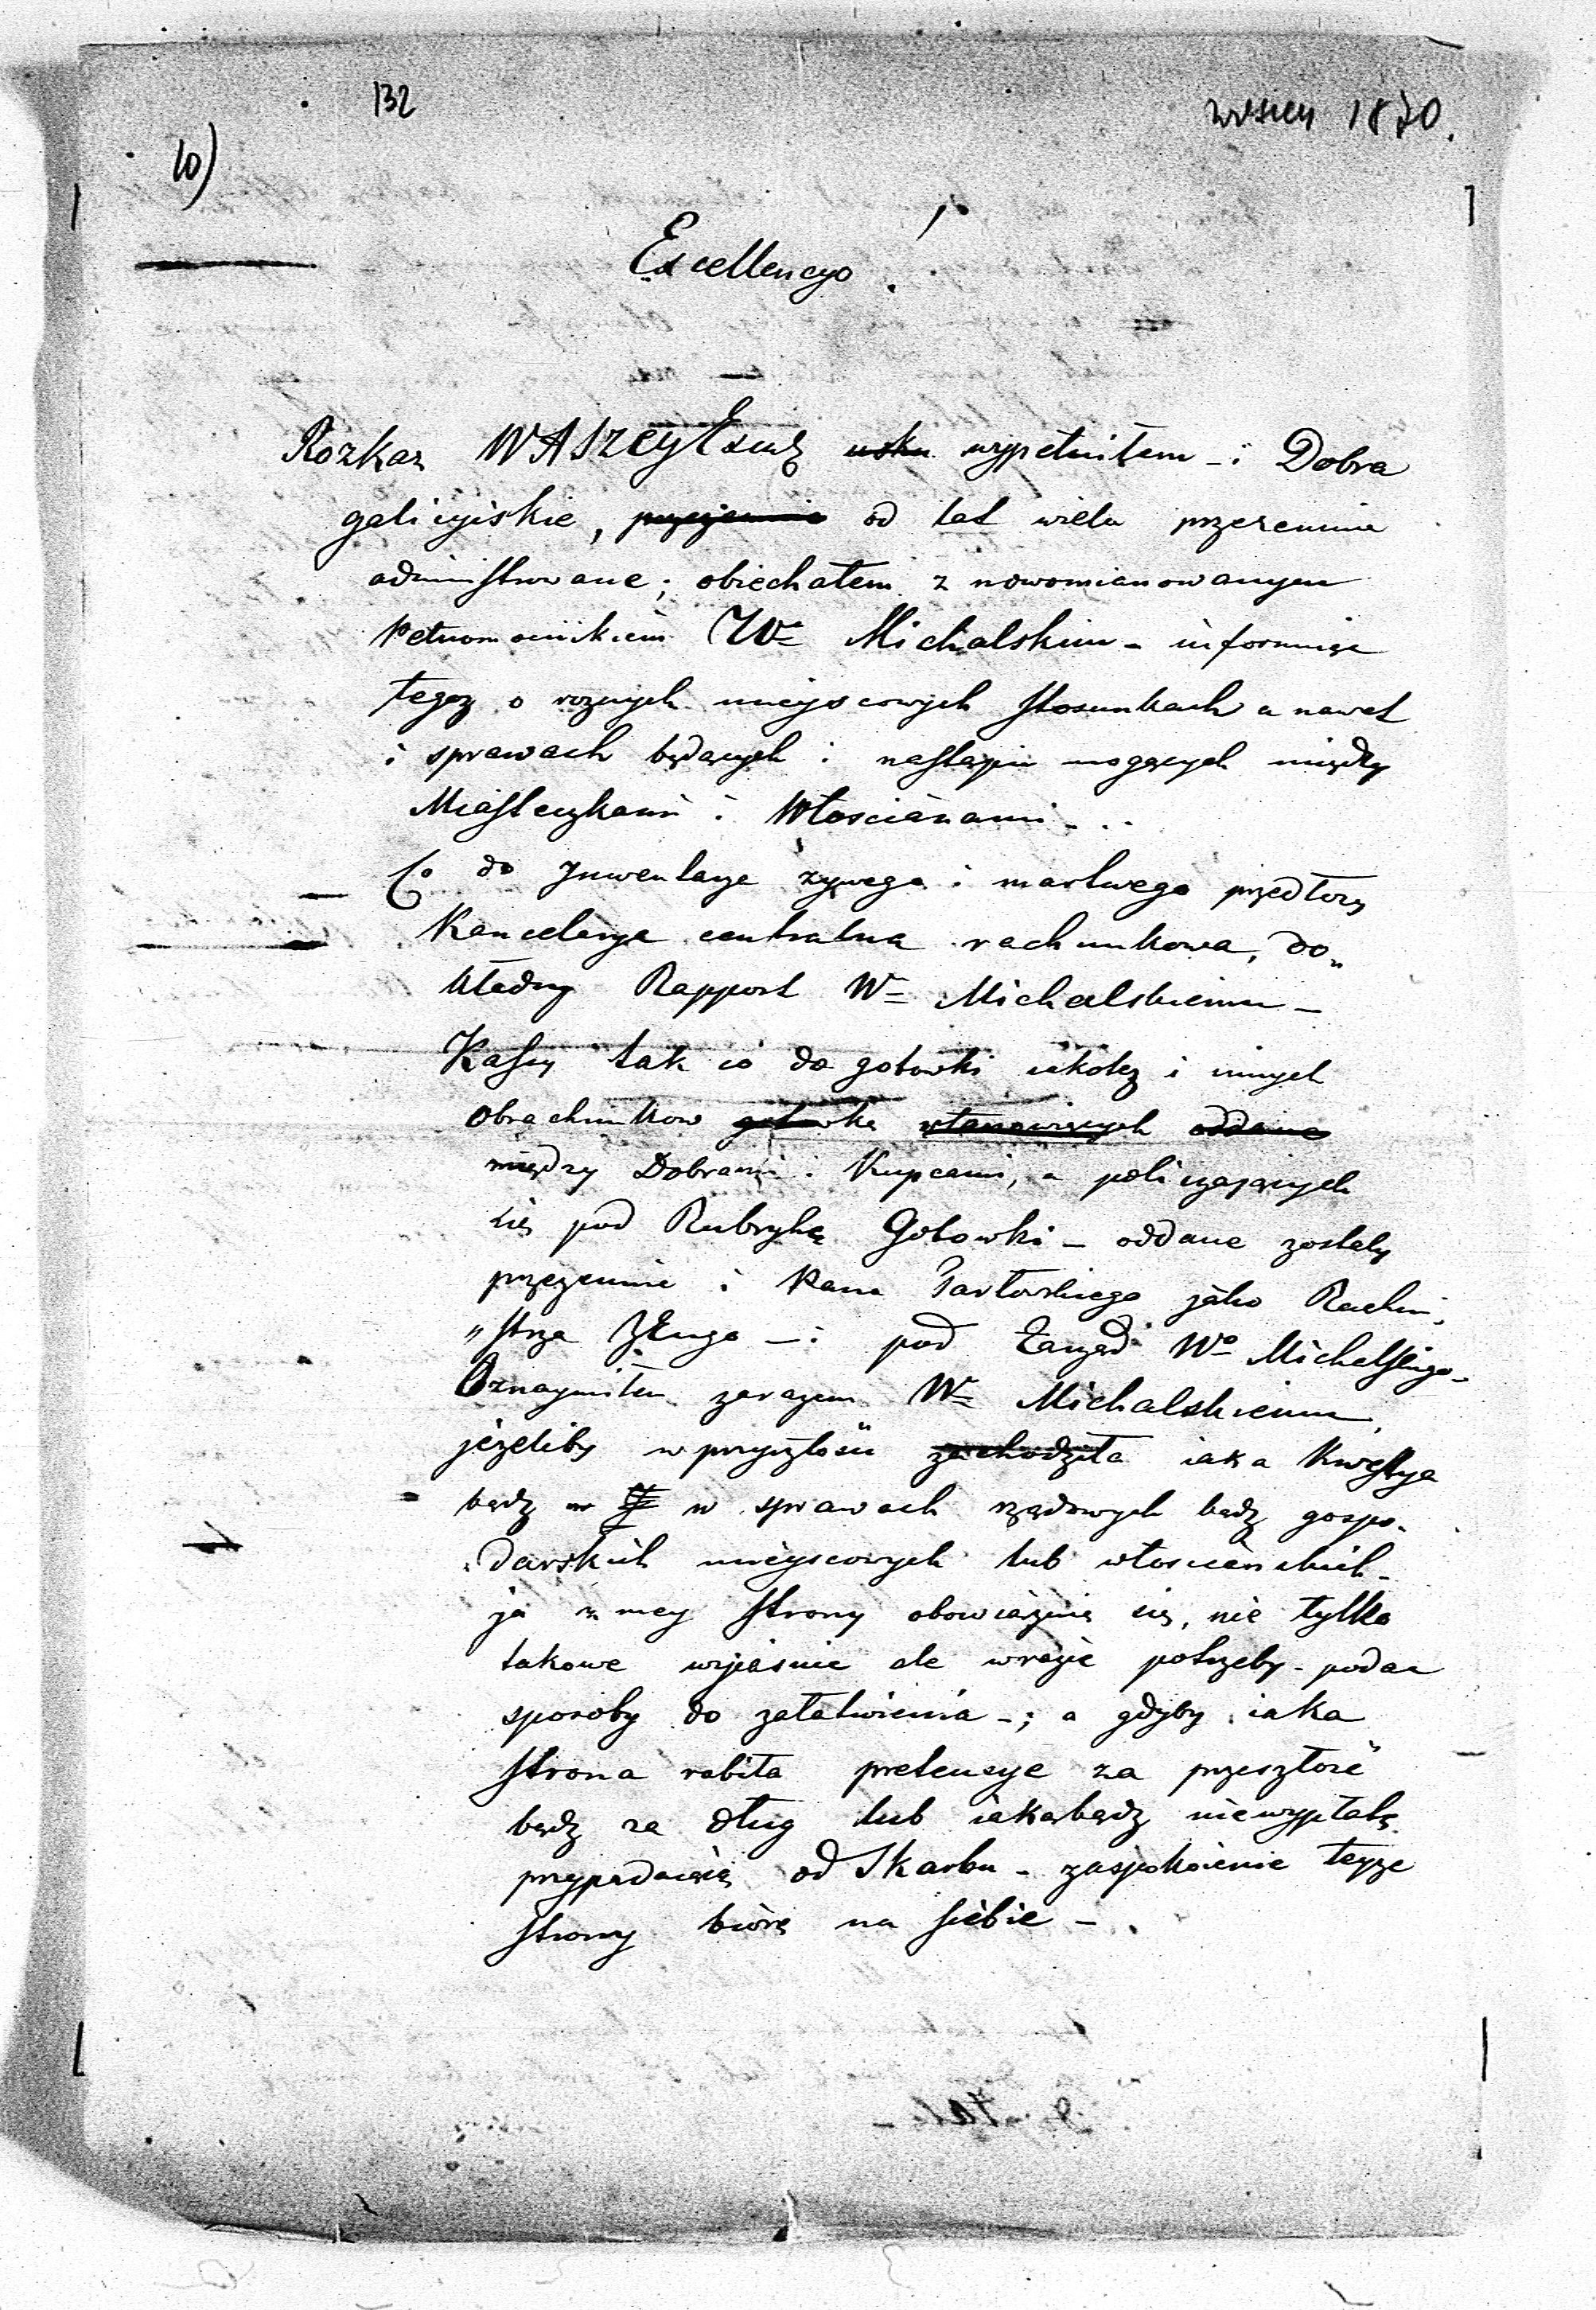 132
wrzesień 1870.
10)
Excellencyo !
Rozkaz WASZEY Excel. usku wypełniłem – i Dobra
galicyiskie, przyjemnie od lat wielu przezemnie
administrowane; obiechałem z nowomianowanym
Pełnomocnikiem Wm Michalskim – informując
tegoz o roznych mieyscowych stosunkach a nawet
i sprawach będących i nastąpić mogących między
Miasteczkami i Włoscianami – ..
Co do Inwentarza żywego i martwego przedłozy
Kancelarya centralna rachunkowa, do„
kładny Rapport Wu Michalskiemu –
Kassy tak co do gotowki iakotez i innych
Obrachunkow gotowkę stanowiących oddane
między Dobrami i Kupcami, a policzających
się pod Rubrykę Gotowki – oddane zostały
przezemnie i Pana
„strza – i pod Zarząd Wo Michalskiego –
Oznaymiłem zarazem Wu Michalskiemu,
jeżeliby w przyszłosci zachodziła iaka Kwestya
bądz w w sprawach rządowych bądz gospo„
darskich mieyscowych lub włoscianskich –
ja z mey strony obowiązuię się, nie tylko
takowe wyiasnic ale wrazie potrzeby – podac
sposoby do załatwienia – ; a gdyby iaka
strona robiła pretensye za przeszłość
bądz za dług lub iakąbądz niewypłatę
przypadaiącą od Skarbu – zaspokoienie teyże
strony biorę na siebie –